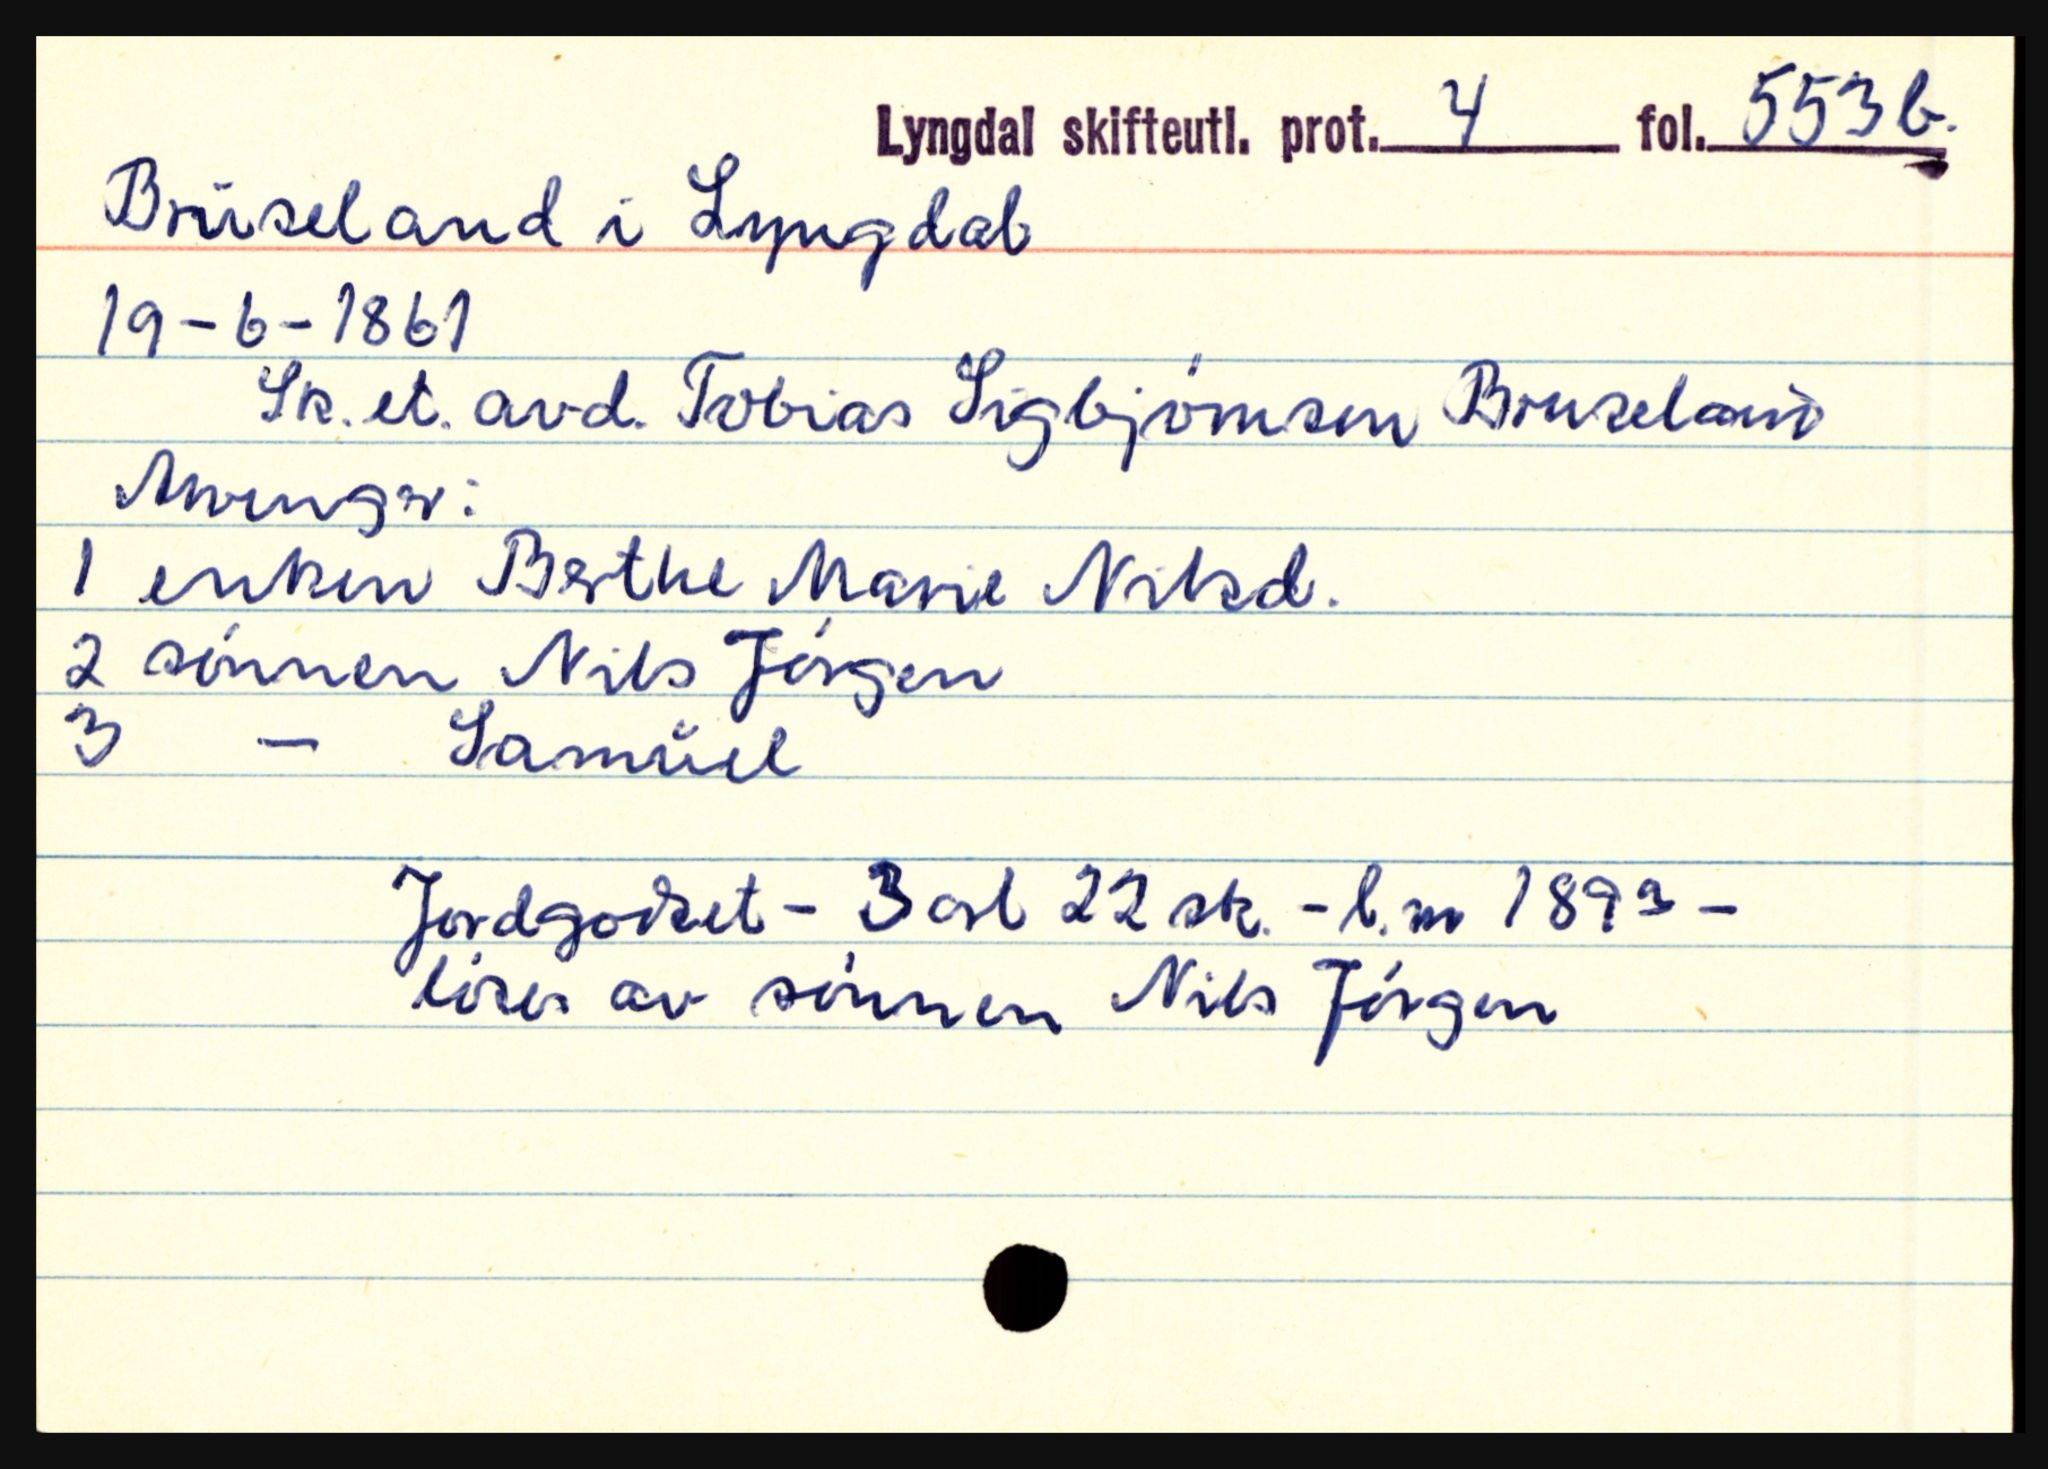 Lyngdal skifteutl. prot. 4 fol. 553 b.
Bruseland i Lyngdal
19-6-1861
Sk. et. avd. Tobias Sigbjørnsen Bruseland
Arvinger:
1 enken Berthe Marie Nilsd.
2 sønnen Nils Jørgen
3 — Samuel
Jordgodset - 3 ort 22 sk. - l. nr 189 3 -
løses av sønnen Nils Jørgen